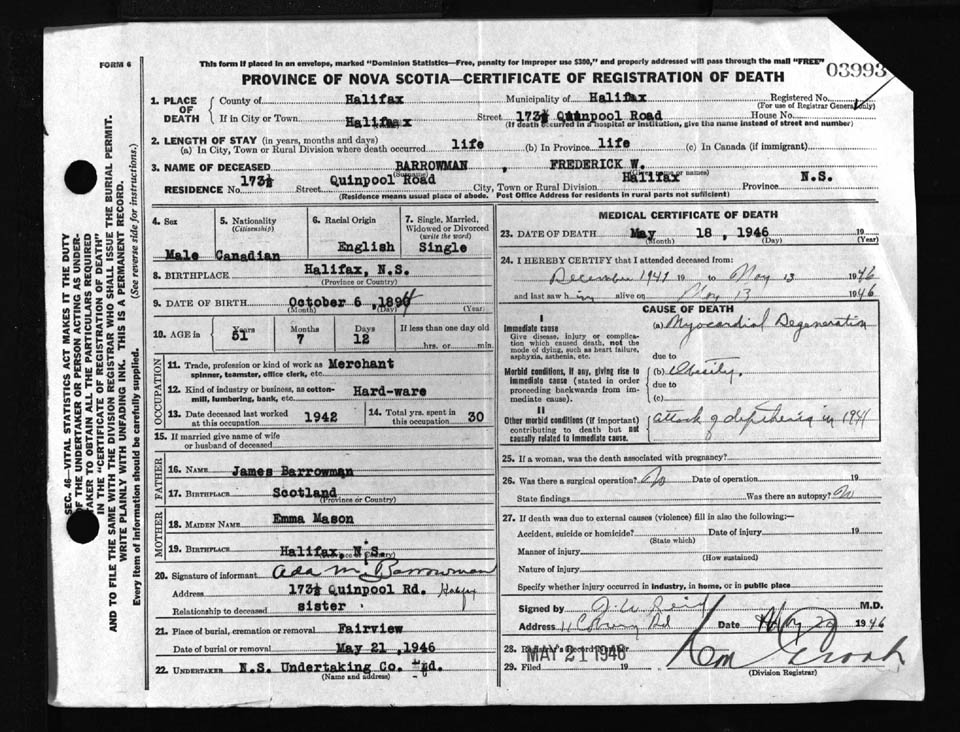 FORM 6
This form if placed in an envelope, marked "Dominion Statistics—Free, penalty for improper use $300," and properly addressed will pass through the mail "FREE"
03993
PROVINCE OF NOVA SCOTIA—CERTIFICATE OF REGISTRATION OF DEATH
SEC. 46—VITAL STATISTICS ACT MAKES IT THE DUTY
OF THE UNDERTAKER OR PERSON ACTING AS UNDER-
TAKER TO OBTAIN ALL THE PARTICULARS REQUIRED
IN THE "CERTIFICATE OF REGISTRATION OF DEATH"
AND TO FILE THE SAME WITH THE DIVISION REGISTRAR WHO SHALL ISSUE THE BURIAL PERMIT.
WRITE PLAINLY WITH UNFADING INK. THIS IS A PERMANENT RECORD.
Every item of Information should be carefully supplied. (See reverse side for instructions.)
1. PLACE OF DEATH County of Halifax Municipality of Halifax Registered No.
(For use of Registrar General only)
If in City or Town Halifax Street 173½ Quinpool Road House No.
(If death occurred in a hospital or institution, give the name instead of street and number)
2. LENGTH OF STAY (in years, months and days)
(a) In City, Town or Rural Division where death occurred life (b) In Province life (c) In Canada (if immigrant)
3. NAME OF DECEASED BARROWMAN , FREDERICK W.
(Surname) (Given name or names)
RESIDENCE No. 173½ Street Quinpool Road City, Town or Rural Division Halifax Province N.S.
(Residence means usual place of abode. Post Office Address for residents in rural parts not sufficient)
4. Sex Male
5. Nationality (Citizenship) Canadian
6. Racial Origin English
7. Single, Married, Widowed or Divorced (write the word) Single
8. BIRTHPLACE Halifax, N.S.
(Province or Country)
9. DATE OF BIRTH October 6, 1894
(Month) (Day) (Year)
10. AGE in Years 51 Months 7 Days 12 If less than one day old hrs. or min.
OCCUPATION
11. Trade, profession or kind of work as spinner, teamster, office clerk, etc. Merchant
12. Kind of industry or business, as cotton-mill, lumbering, bank, etc. Hard-ware
13. Date deceased last worked at this occupation 1942 14. Total yrs. spent in this occupation 30
15. If married give name of wife or husband of deceased
FATHER
16. NAME James Barrowman
17. BIRTHPLACE Scotland
(Province or Country)
MOTHER
18. MAIDEN NAME Emma Mason
19. BIRTHPLACE Halifax, N.S.
(Province or Country)
20. Signature of informant Ada M. Barrowman
Address 173½ Quinpool Rd. Halifax
Relationship to deceased sister
21. Place of burial, cremation or removal Fairview
Date of burial or removal May 21, 1946
22. UNDERTAKER N.S. Undertaking Co. Ltd.
(Name and address)
MEDICAL CERTIFICATE OF DEATH
23. DATE OF DEATH May 18, 1946 19
(Month) (Day) (Year)
24. I HEREBY CERTIFY that I attended deceased from:
December 1941 19 to May 13 1946
and last saw him alive on May 13 1946
CAUSE OF DEATH
I
Immediate cause
Give disease, injury or complication which caused death, not the mode of dying, such as heart failure, asphyxia, asthenia, etc.
(a) Myocardial Degeneration
due to
Morbid conditions, if any, giving rise to immediate cause (stated in order proceeding backwards from immediate cause).
(b) Obesity.
due to
(c)
II
Other morbid conditions (if important) contributing to death but not causally related to immediate cause.
attack of diptheria in 1941
25. If a woman, was the death associated with pregnancy?
26. Was there a surgical operation? No Date of operation 19
State findings Was there an autopsy? No
27. If death was due to external causes (violence) fill in also the following:—
Accident, suicide or homicide? Date of injury 19
(State which)
Manner of injury
(How sustained)
Nature of injury
Specify whether injury occurred in industry, in home, or in public place
Signed by Reid M.D.
Address Rd Date May 20 1946
28. Registrar's Record Number
29. Filed MAY 21 1946 19
(Division Registrar)